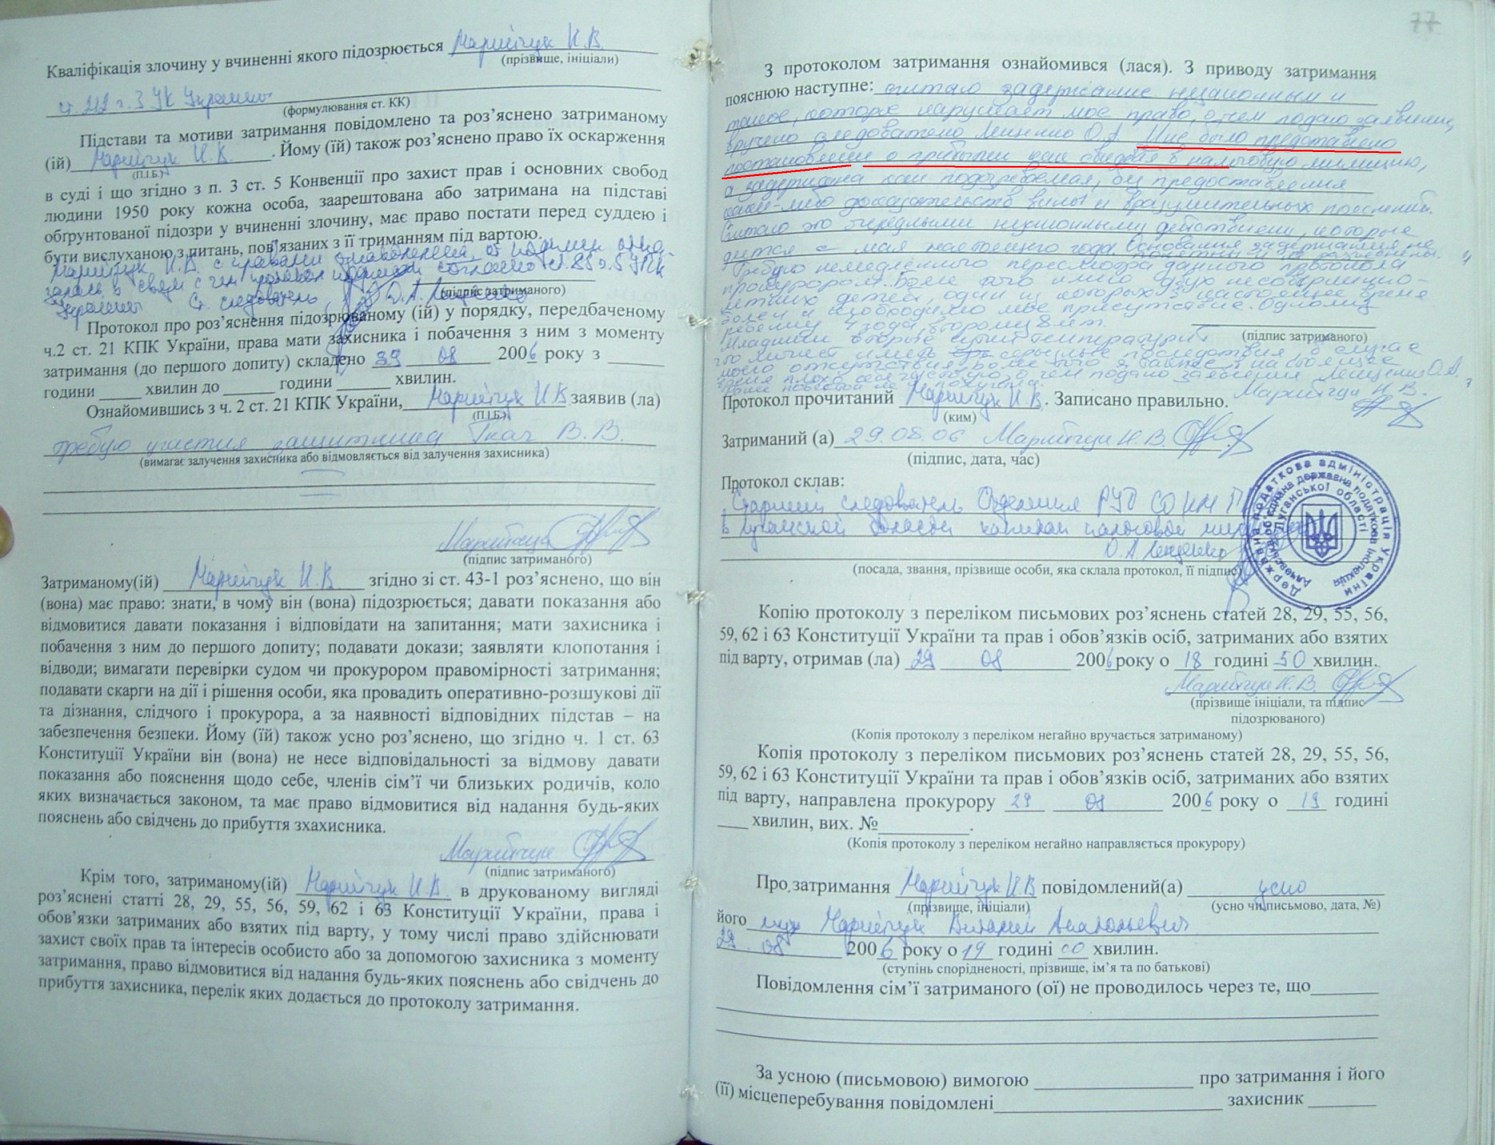 Кваліфікація злочину у вчиненні якого підозрюється Марийчук И.В.
(прізвище, ініціали)
ст. 212 ч. 3 УК Украины
(формулювання ст. КК)
Підстави та мотиви затримання повідомлено та роз’яснено затриманому
(ій) Марийчук И.В. . Йому (їй) також роз’яснено право їх оскарження
(П.І.Б.)
в суді і що згідно з п. 3 ст. 5 Конвенції про захист прав і основних свобод
людини 1950 року кожна особа, заарештована або затримана на підставі
обґрунтованої підозри у вчиненні злочину, має право постати перед суддею і
бути вислуханою з питань, пов’язаних з її триманням під вартою.
Марийчук И.В. с правами ознакомлена, от подписи отка-
согласно ст. 85 ч. 5 УПК
Украины Ст. следователь
(підпис затриманого)
Протокол про роз’яснення підозрюваному (ій) у порядку, передбаченому
ч.2 ст. 21 КПК України, права мати захисника і побачення з ним з моменту
затримання (до першого допиту) складено 29 08 2006 року з
години хвилин до години хвилин.
Ознайомившись з ч. 2 ст. 21 КПК України, Марийчук И.В. заявив (ла)
(П.І.Б.)
требую участия защитника Ткач В.В.
(вимагає залучення захисника або відмовляється від залучення захисника)
Марийчук
(підпис затриманого)
Затриманому(ій) Марийчук И.В. згідно зі ст. 43-1 роз’яснено, що він
(вона) має право: знати, в чому він (вона) підозрюється; давати показання або
відмовитися давати показання і відповідати на запитання; мати захисника і
побачення з ним до першого допиту; подавати докази; заявляти клопотання і
відводи; вимагати перевірки судом чи прокурором правомірності затримання;
подавати скарги на дії і рішення особи, яка провадить оперативно-розшукові дії
та дізнання, слідчого і прокурора, а за наявності відповідних підстав – на
забезпечення безпеки. Йому (їй) також усно роз’яснено, що згідно ч. 1 ст. 63
Конституції України він (вона) не несе відповідальності за відмову давати
показання або пояснення щодо себе, членів сім’ї чи близьких родичів, коло
яких визначається законом, та має право відмовитися від надання будь-яких
пояснень або свідчень до прибуття зхахисника.
Марийчук
(підпис затриманого)
Крім того, затриманому(ій) Марийчук И.В. в друкованому вигляді
роз’яснені статті 28, 29, 55, 56, 59, 62 і 63 Конституції України, права і
обов’язки затриманих або взятих під варту, у тому числі право здійснювати
захист своїх прав та інтересів особисто або за допомогою захисника з моменту
затримання, право відмовитися від надання будь-яких пояснень або свідчень до
прибуття захисника, перелік яких додається до протоколу затримання.
77
З протоколом затримання ознайомився (лася). З приводу затримання
пояснюю наступне: считаю задержание незаконным и
которое нарушает мое право, о чем подаю заявление,
вручено следователю Лещенко О.А. Мне было представлено
постановление о прибытии как свидетеля в налоговую милицию,
а задержана как подозреваемая, без предоставления
каких-либо доказательств вины и вразумительных пояснений.
Считаю это очередными незаконными действиями, которые
с мая настоящего года. Основания задержания не
Требую немедленного пересмотра данного протокола
прокурором. Более того имею двух несовершенно-
летних детей, один из которых в настоящее время
болен и необходимо мое присутствие. Одному
ребенку 4 года, второму 8 лет.
(підпис затриманого)
Младший
моего отсутствия.
Протокол прочитаний Марийчук И.В. . Записано правильно. Марийчук И.В.
(ким)
Затриманий (а) 29.08.06 Марийчук И.В.
(підпис, дата, час)
Протокол склав:
Старший следователь Отделения РУД СО
в Луганской области капитан налоговой милиции
О.А. Лещенко
(посада, звання, прізвище особи, яка склала протокол, її підпис)
Державна податкова адміністрація України
Луганської області
Копію протоколу з переліком письмових роз’яснень статей 28, 29, 55, 56,
59, 62 і 63 Конституції України та прав і обов’язків осіб, затриманих або взятих
під варту, отримав (ла) 29 08 2006 року о 18 годині 50 хвилин.
Марийчук И.В.
(прізвище ініціали, та підпис
підозрюваного)
(Копія протоколу з переліком негайно вручається затриманому)
Копія протоколу з переліком письмових роз’яснень статей 28, 29, 55, 56,
59, 62 і 63 Конституції України та прав і обов’язків осіб, затриманих або взятих
під варту, направлена прокурору 29 08 2006 року о 19 годині
хвилин, вих. № .
(Копія протоколу з переліком негайно направляється прокурору)
Про затримання Марийчук И.В. повідомлений(а) усно
(прізвище, ініціали) (усно чи письмово, дата, №)
його муж Марийчук Виталий Анатольевич
29 08 2006 року о 19 годині 00 хвилин.
(ступінь спорідненості, прізвище, ім’я та по батькові)
Повідомлення сім’ї затриманого (ої) не проводилось через те, що
За усною (письмовою) вимогою про затримання і його
(її) місцеперебування повідомлені захисник